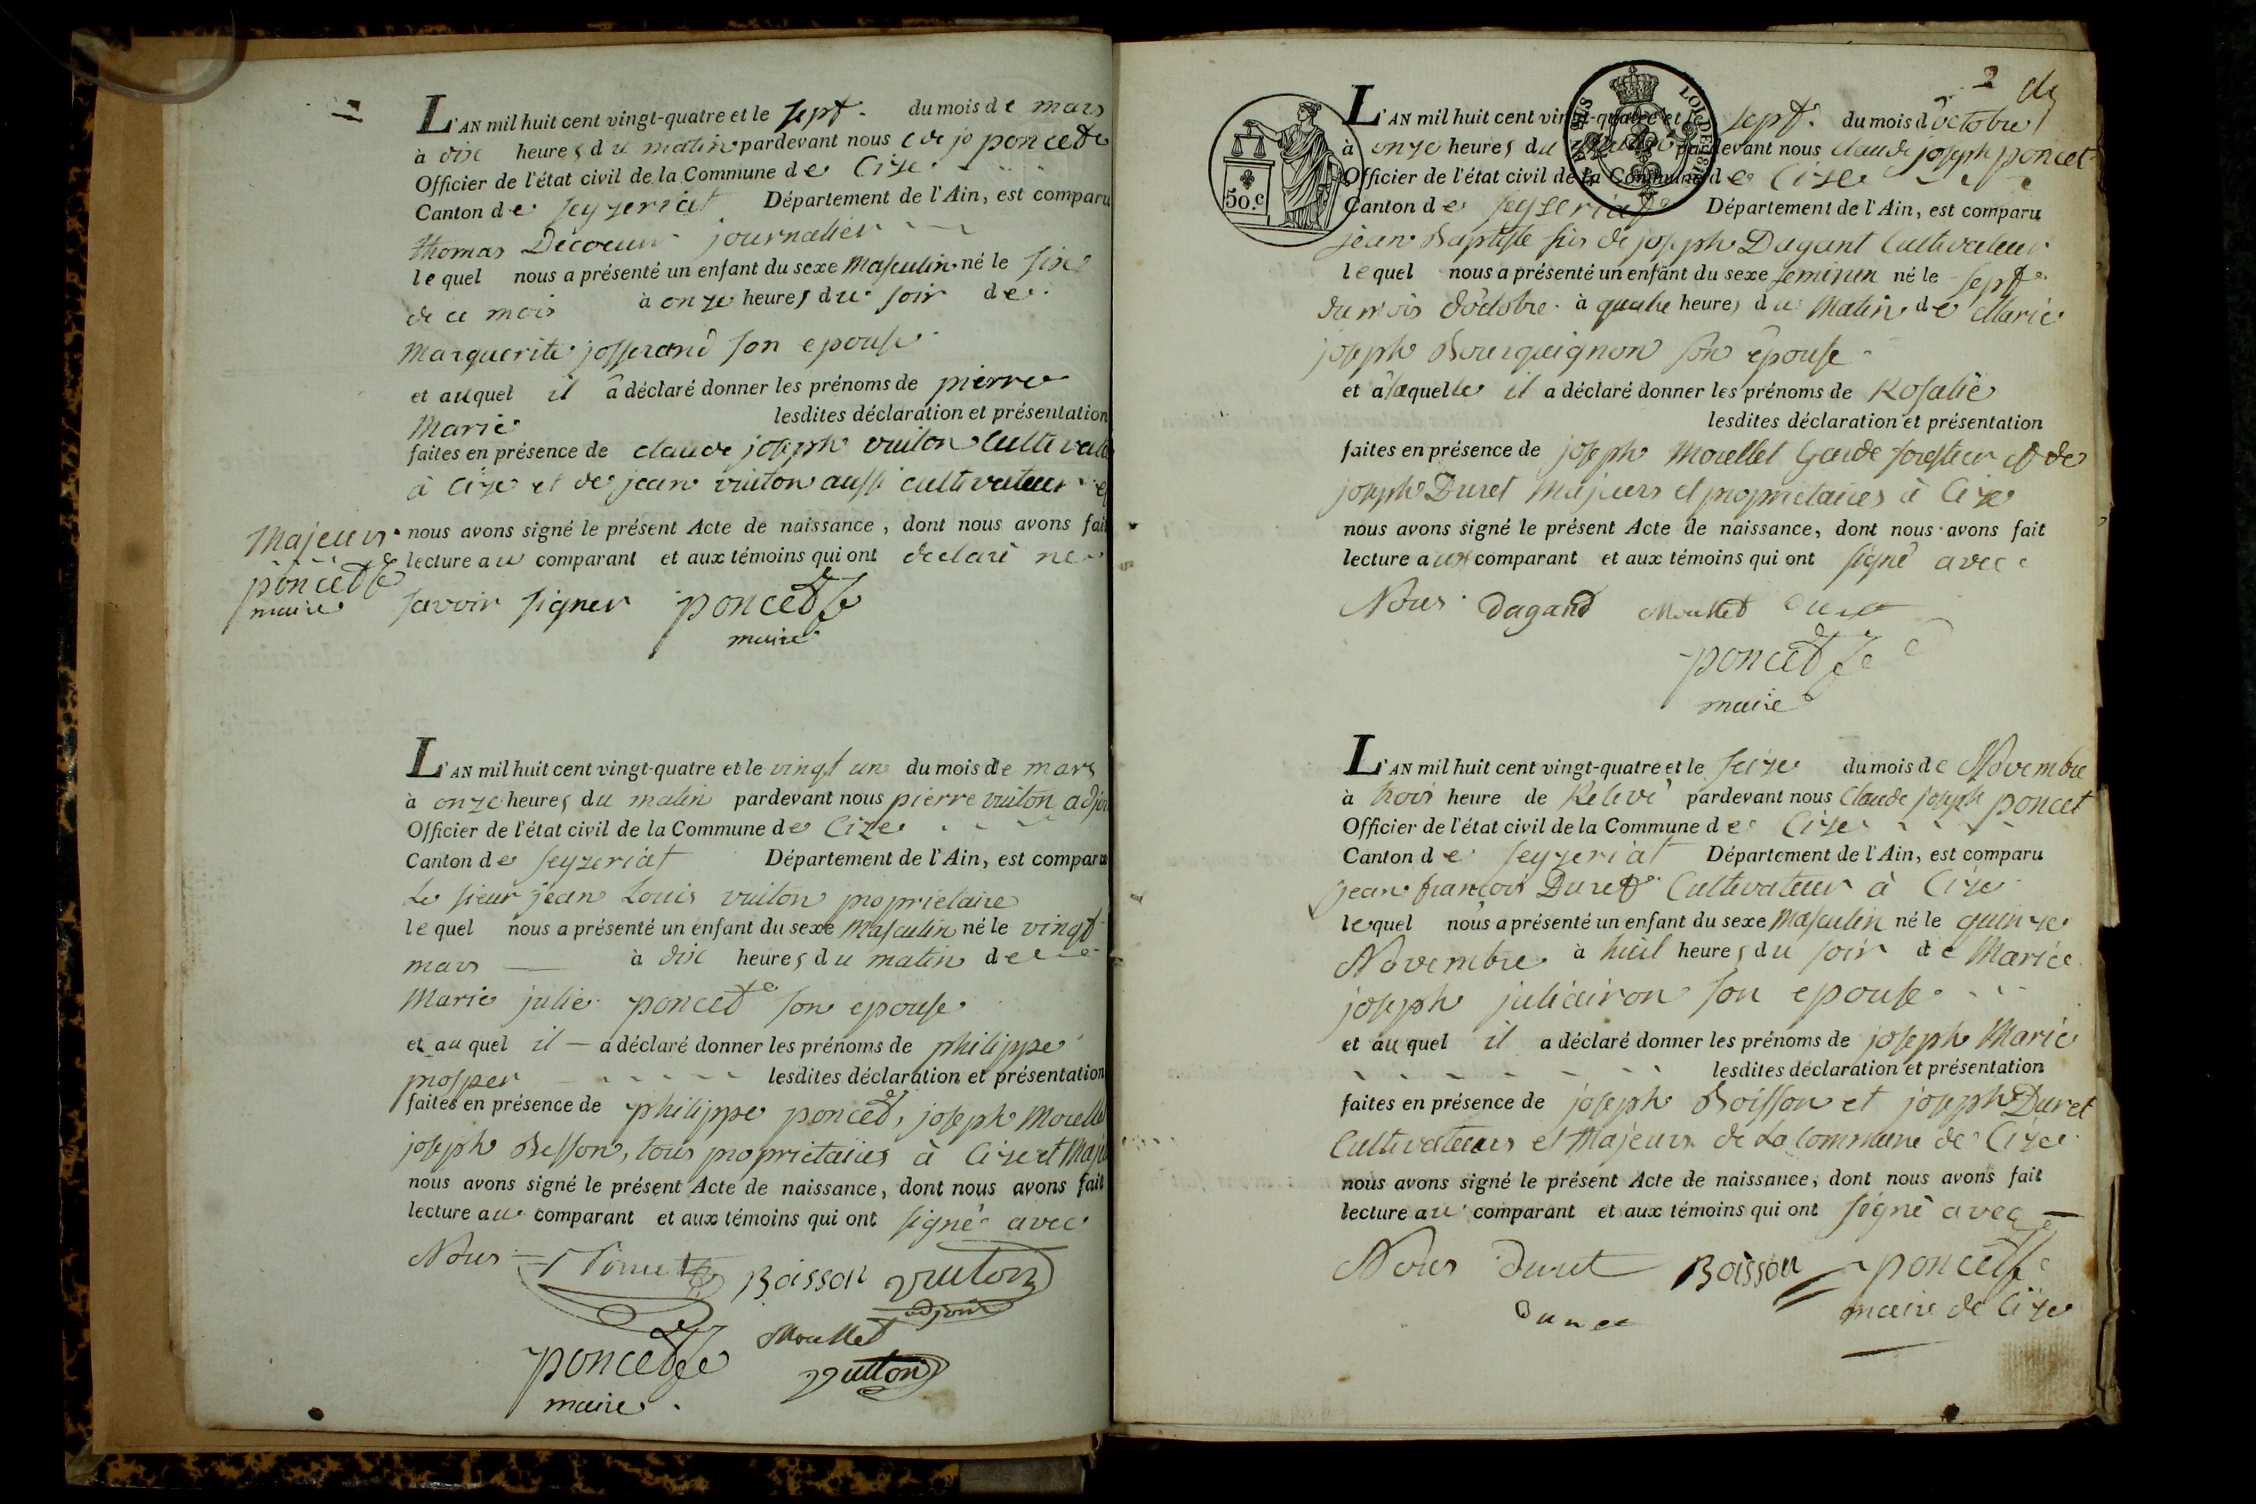 L'AN mil huit cent vingt-quatre et le sept. du mois de mars
à dix heures du matin pardevant nous c de jo poncet
Officier de l'état civil de la Commune de Cize
Canton de seyzeriat Département de l'Ain, est comparu
thomas Decoeur journalier
lequel nous a présenté un enfant du sexe Masculin né le six
de ce mois à onze heures du soir de
Marguerite josserand son epouse
et auquel il a déclaré donner les prénoms de pierre
Marie lesdites déclaration et présentation
faites en présence de claude joseph vuiton Cultivat
à Cize et de jean vuiton aussi cultivateur et
Majeurs nous avons signé le présent Acte de naissance, dont nous avons fait
lecture au comparant et aux témoins qui ont déclaré ne
poncet
maire
savoir signer poncet
maire
L'AN mil huit cent vingt-quatre et le vingt un du mois de mars
à onze heures du matin pardevant nous pierre vuiton adjoin
Officier de l'état civil de la Commune de Cize
Canton de seyzeriat Département de l'Ain, est comparu
Le sieur jean Louis vuiton proprietaire
lequel nous a présenté un enfant du sexe Masculin né le vingt
mars à dix heures du matin de
Marie julie poncet son epouse
et auquel il a déclaré donner les prénoms de philippe
prosper lesdites déclaration et présentation
faites en présence de philippe poncet, joseph Moelle
joseph Besson, tous proprietaires à Cize et Maje
nous avons signé le présent Acte de naissance, dont nous avons fait
lecture au comparant et aux témoins qui ont signé avec
Nous Boisson vuiton
adjoint
poncet Moullet
maire vuiton
2
50.c
LOI DE 1816
L'AN mil huit cent vingt-quatre et le sept. du mois d'octobre
à onze heures du matin pardevant nous claude joseph poncet
Officier de l'état civil de la Commune de Cize
Canton de seyzeriat Département de l'Ain, est comparu
jean Baptiste fils de joseph Dagant Cultivateur
lequel nous a présenté un enfant du sexe feminin né le sept
du mois d'octobre à quatre heures du Matin de Marie
joseph Bourquignon son epouse
et à laquelle il a déclaré donner les prénoms de Rosalie
lesdites déclaration et présentation
faites en présence de joseph Moellet Garde forestier et de
joseph Duret Majeurs et proprietaires à Cize
nous avons signé le présent Acte de naissance, dont nous avons fait
lecture aux comparant et aux témoins qui ont signé avec
Nous Dagand Moullet Duret
poncet
maire
L'AN mil huit cent vingt-quatre et le seize du mois de Novembre
à trois heure de Relevé pardevant nous Claude joseph poncet
Officier de l'état civil de la Commune de Cize
Canton de seyzeriat Département de l'Ain, est comparu
jean françois Duret Cultivateur à Cize
lequel nous a présenté un enfant du sexe Masculin né le quinze
Novembre à huit heures du soir de Marie
joseph juliairon son epouse
et auquel il a déclaré donner les prénoms de joseph Marie
lesdites déclaration et présentation
faites en présence de joseph Boisson et joseph Duret
Cultivateurs et Majeurs de La Commune de Cize
nous avons signé le présent Acte de naissance, dont nous avons fait
lecture au comparant et aux témoins qui ont signé avec
Nous Duret Boisson poncet
maire de Cize